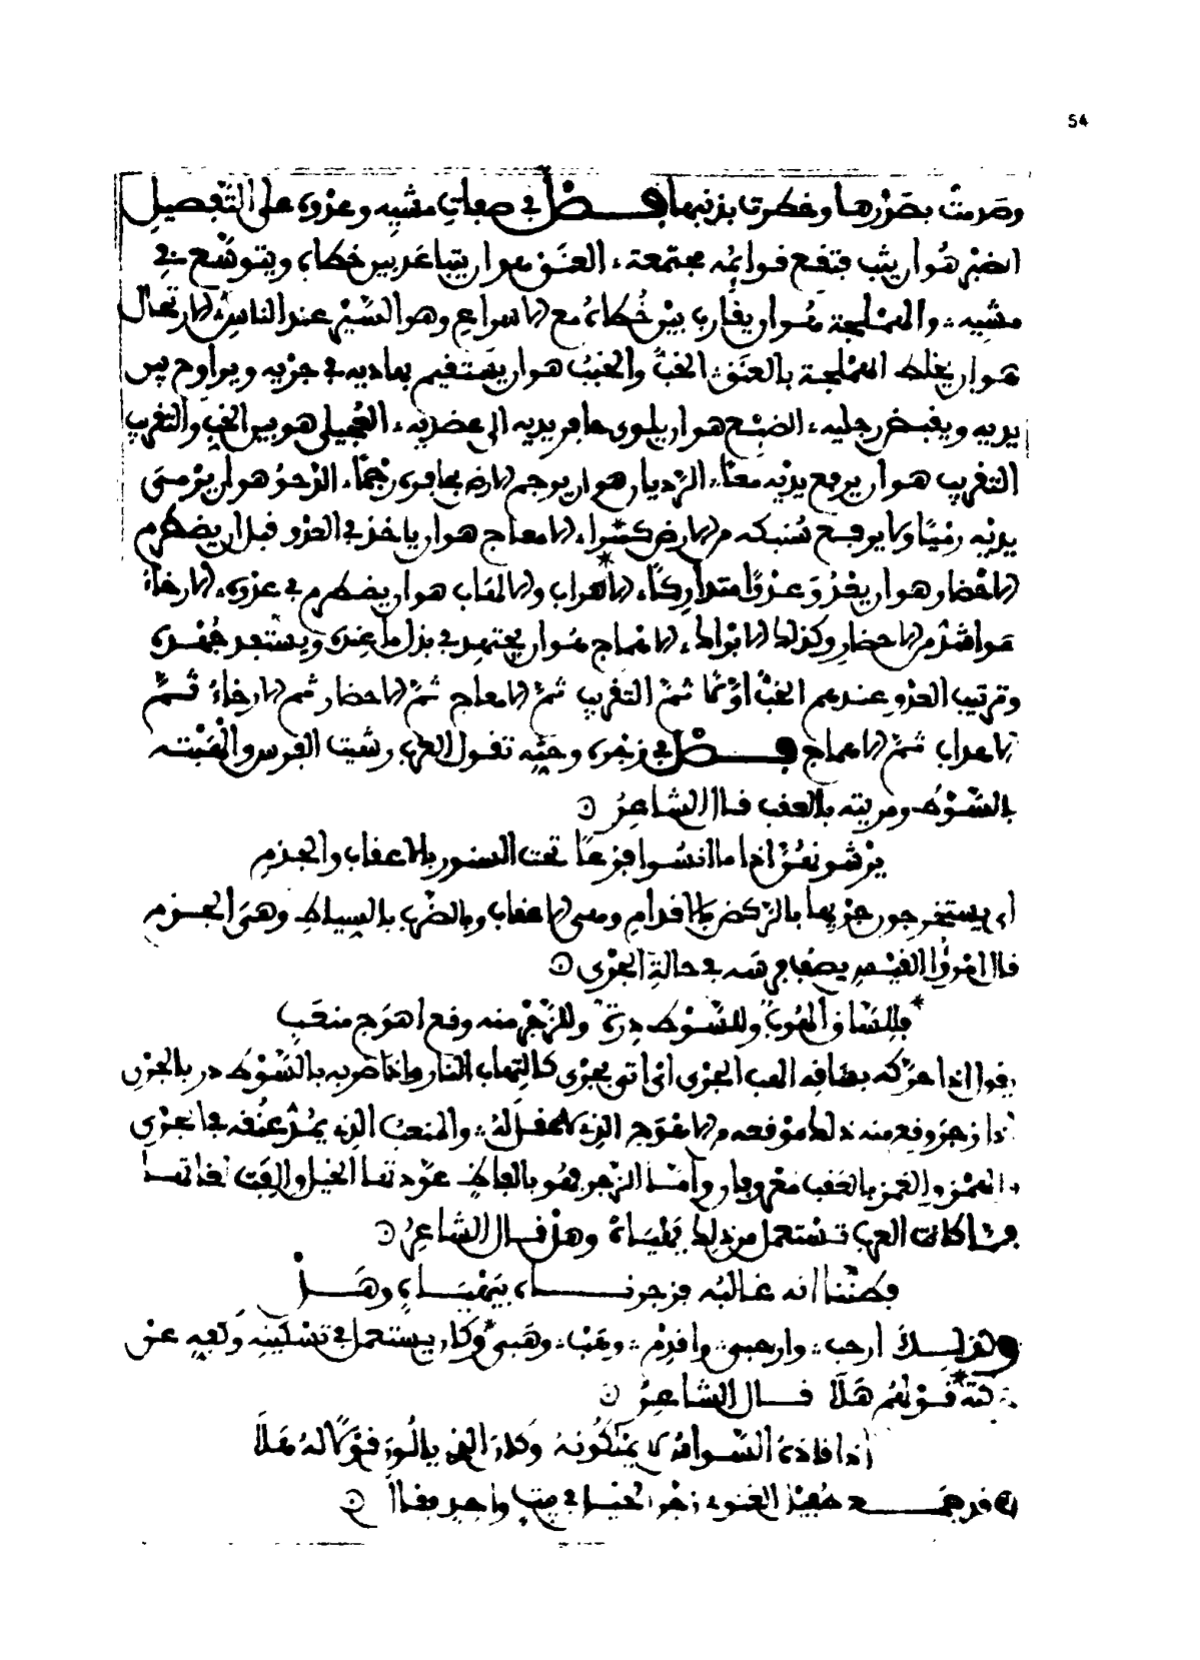 54
وضربت بصدرها وخطرت بذنبها فصل في صفات مشيه وعدوه على التفصيل
الضبر هو ان يثب فتقع قوائمه مجتمعة، العنق هو ان يتباعد بين خطاه ويتوسع في
مشيه، والهملجة هو ان يقارب بين خطاه مع الاسراع وهو السير عند الناس، الارتجال
هو ان يخلط الهملجة بالعنق، الخب والخبب هو ان يستقيم بهاديه في جريه ويراوح بين
يديه ويقبض رجليه، الضبع هو ان يلوي حافر يديه الى عضديه، العجيلى هو بين الخب والتقريب
التقريب هو ان يرفع يديه معا، الرديان هو ان يرجم الارض بحافره رجما، الدحو هو ان يرمي
يديه رميا ولا يرفع سنبكه من الارض كثيرا، الامعاج هو ان ياخذ في العدو قبل ان يضطرم
الاحضار هو ان يعدو عدوا متداركا، الاهذاب والالهاب هو ان يضطرم في عدوه، الارخاء
هو اشد من الاحضار وكذلك الابراط، الاهماج هو ان يجتهد في بذل ما عنده ويستنجد جهده
وترتيب العدو عندهم الخب اولا ثم التقريب ثم الامعاج ثم الاحضار ثم الارخاء ثم
الاهذاب ثم الاهماج فصل في زجره وحثه تقول العرب وشيت الفرس والهبته
بالسوط ومريته بالعقب قال الشاعر
يوشونهن اذا ما انسوا فزعا تحت السنور بالاعقاب والجذم
اي يستخرجون جريها بالركض بالاقدام وهي الاعقاب وبالضرب بالسياط وهي الجذم
قال امرؤ القيس يصف فرسه في حالة الجري
فللساق الهوب وللسوط درة وللزجر منه وقع اهوج منعب
يقول اذا حركه بساقه الهب الجري اي اتى بجري كالتهاب النار واذا ضربه بالسوط در بالجري
اذا زجر وقع منه ذلك موقعه من الاهوج الذي لا عقل له، والمنعب الذي يمد عنقه في الجري
والهمز والغمز بالعقب معروفان واما الزجر فهو بالفاظ عودتها الخيل والفت لغاتها
كانت العرب تستعمل من ذلك وهذا قال الشاعر
فظننا انه غالبه فزجرناه بيهياه وهلا
وكذلك ارحب، وارحبي، واقدم، وهب، وهبي وكان يستعمل في تسكينه وكفه عن
قولهم هلا قال الشاعر
اذا قاده السواس لا يملكونه وكان الذي يالون قولا له هلا
وقد جمع طفيل الغنوي زجر الخيل في بيت واحد فقال